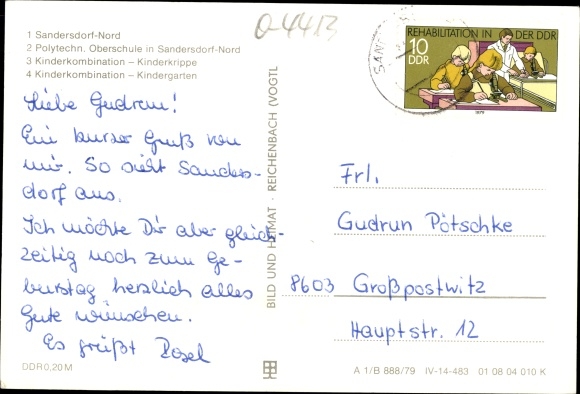 1 Sandersdorf-Nord
2 Polytechn. Oberschule in Sandersdorf-Nord
3 Kinderkombination – Kinderkrippe
4 Kinderkombination – Kindergarten
Liebe Gudrun!
Ein kurzer Gruß von
mir. So sieht Sanders-
dorf aus.
Ich möchte Dir aber gleich-
zeitig noch zum Ge-
burtstag herzlich alles
Gute wünschen.
Es grüßt Rosel
DDR 0,20 M
BILD UND HEIMAT · REICHENBACH (VOGTL
REHABILITATION IN DER DDR
10
DDR
1979
Frl.
Gudrun Pötschke
8603 Großpostwitz
Hauptstr. 12
A 1/B 888/79 IV-14-483 01 08 04 010 K